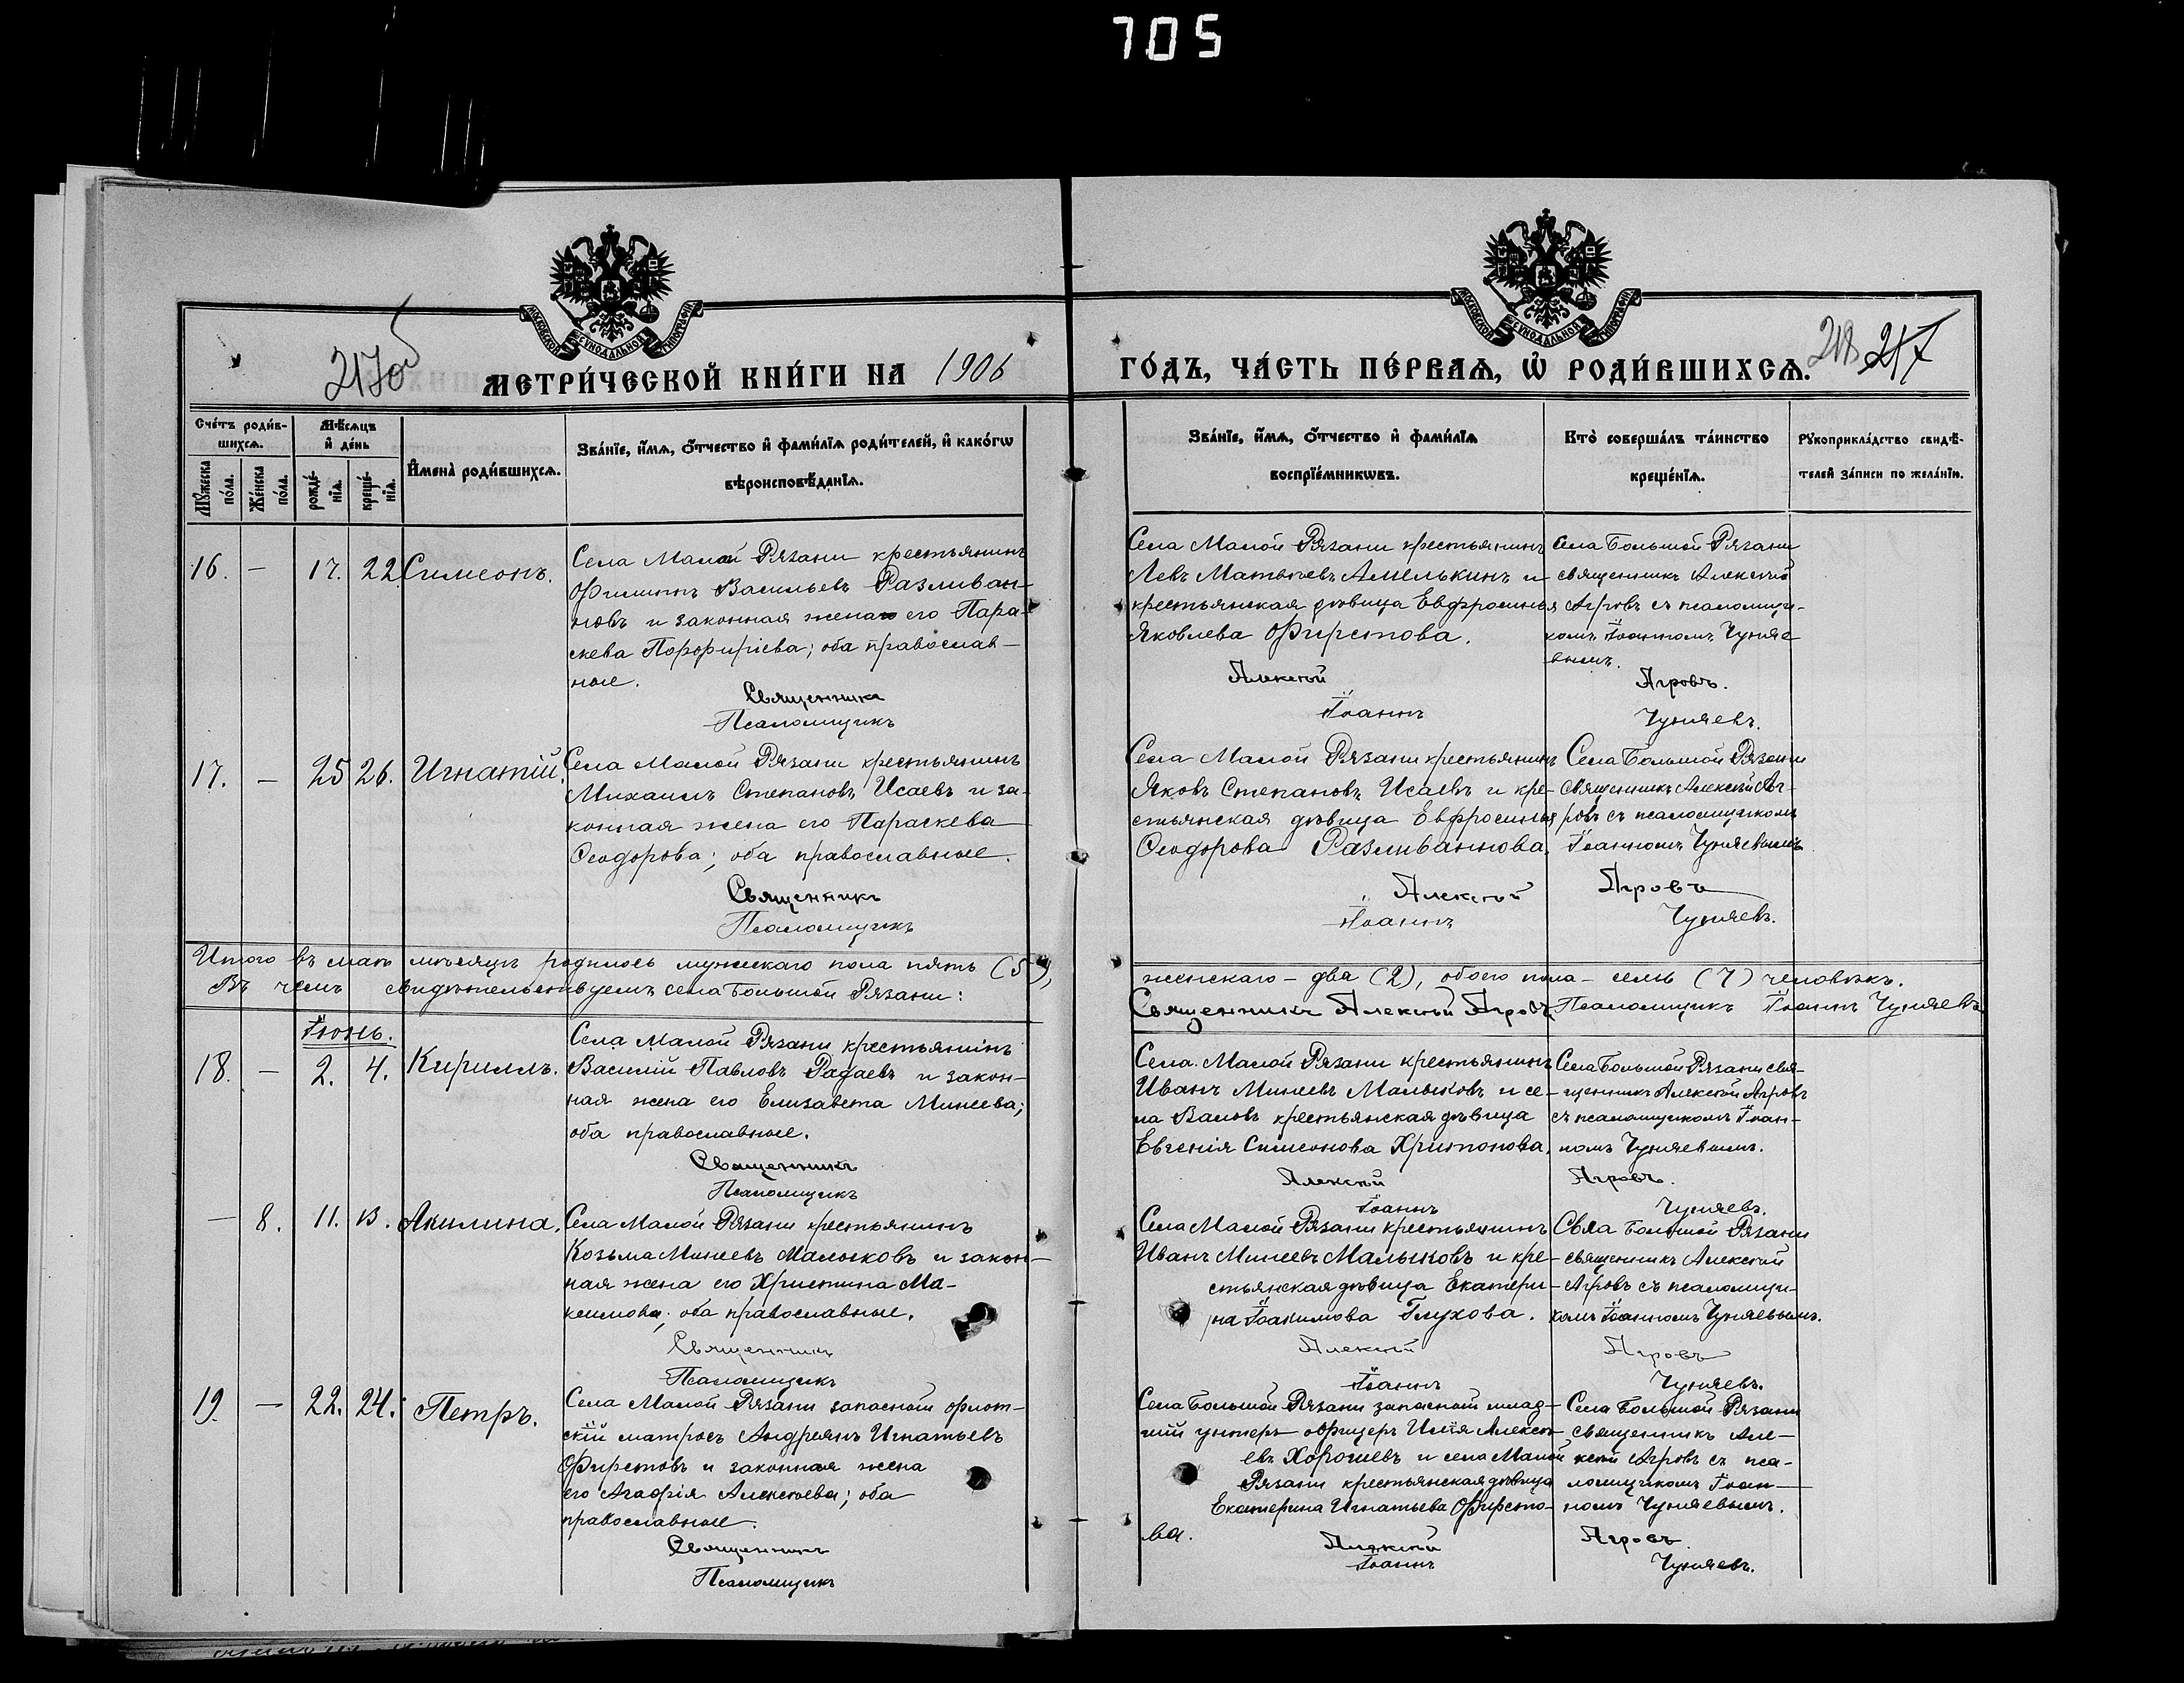 705
МОСКОВСКОЙ СѴНОДАЛЬНОЙ ТИПОГРАФІИ
МОСКОВСКОЙ СѴНОДАЛЬНОЙ ТИПОГРАФІИ
217об
МЕТРИ́ЧЕСКОЙ КНИ́ГИ НА 1906
ГО́ДЪ, ЧА́СТЬ ПЕ́РВАѦ, Ѡ҆ РОДИ́ВШИХСѦ.
218 217
Сче́тъ роди́в-
шихсѧ.
Мѣ́сѧцъ
и҆ де́нь
Мꙋ́жеска по́ла.
Же́нска по́ла.
рожде́-
нїѧ.
креще́-
нїѧ.
И҆мена̀ роди́вшихсѧ.
Зва́нїе, и҆́мѧ, ѻ҆́тчество и҆ фами́лїѧ роди́телей, и҆ како́гѡ
вѣроисповѣ́данїѧ.
Зва́нїе, и҆́мѧ, ѻ҆́тчество и҆ фами́лїѧ
воспрїе́мникѡвъ.
Кто̀ соверша́лъ та́инство
креще́нїѧ.
Рꙋкоприкла́дство свидѣ́-
телей за́писи по жела́нїю.
16. — 17. 22 Симеонъ.
Села Малой Рязани крестьянинъ
Филиппъ Васильевъ Разливан-
новъ и законная жена его Пара-
скева Порфиріева; оба православ-
ные.
Священникъ
Псаломщикъ
Села Малой Рязани крестьянинъ
Левъ Матвѣевъ Амелькинъ и
крестьянская дѣвица Евфросинья
Яковлева Фирстова.
Алексѣй
Іоаннъ
Села Большой Рязани
священникъ Алексѣй
Агровъ съ псаломщи-
комъ Іоанномъ Чуняе
вымъ.
Агровъ.
Чуняевъ.
17. — 25 26. Игнатій.
Села Малой Рязани крестьянинъ
Михаилъ Степановъ Исаевъ и за-
конная жена его Параскева
Ѳеодорова; оба православные.
Священникъ
Псаломщикъ
Села Малой Рязани крестьянинъ
Яковъ Степановъ Исаевъ и кре-
стьянская дѣвица Евфросинья
Ѳеодорова Разливаннова.
Алексѣй
Іоаннъ
Села Большой Рязани
священникъ Алексѣй Аг-
ровъ съ псаломщикомъ
Іоанномъ Чуняевымъ
Агровъ
Чуняевъ.
Итого въ маѣ мѣсяцѣ родилось мужескаго пола пять (5),
женскаго — два (2), обоего пола — семь (7) человѣкъ.
Въ чемъ свидѣтельствуемъ села Большой Рязани:
Священникъ Алексѣй Агровъ Псаломщикъ Іоаннъ Чуняевъ
Іюнь.
18. — 2. 4. Кириллъ.
Села Малой Рязани крестьянинъ
Василій Павловъ Радаевъ и закон-
ная жена его Елизавета Минеева;
оба православные.
Священникъ
Псаломщикъ
Села Малой Рязани крестьянинъ
Иванъ Минеевъ Малыковъ и се-
ла Валовъ крестьянская дѣвица
Евгенія Симеонова Хритонова.
Алексѣй
Іоаннъ
Села Большой Рязани свя-
щенникъ Алексѣй Агровъ
съ псаломщикомъ Іоан-
номъ Чуняевымъ.
Агровъ.
Чуняевъ.
— 8. 11. 13. Акилина.
Села Малой Рязани крестьянинъ
Козьма Минеевъ Малыковъ и закон-
ная жена его Христина Ма-
ксимова; оба православные.
Священникъ
Псаломщикъ
Села Малой Рязани крестьянинъ
Иванъ Минеевъ Малыковъ и кре-
стьянская дѣвица Екатери-
на Іоакимова Глухова.
Алексѣй
Іоаннъ
Села Большой Рязани
священникъ Алексѣй
Агровъ съ псаломщи-
комъ Іоанномъ Чуняевымъ.
Агровъ
Чуняевъ.
19. — 22. 24. Петръ.
Села Малой Рязани запасной флот-
скій матросъ Андреянъ Игнатьевъ
Фирстовъ и законная жена
его Агафія Алексѣева; оба
православные.
Священникъ
Псаломщикъ
Села Большой Рязани запасной млад-
шій унтеръ офицеръ Илія Алексѣ-
евъ Хорошевъ и села Малой
Рязани крестьянская дѣвица
Екатерина Игнатьева Фирсто-
ва.
Алексѣй
Іоаннъ
Села Большой Рязани
священникъ Але-
ксѣй Агровъ съ пса-
ломщикомъ Іоан-
номъ Чуняевымъ.
Агровъ.
Чуняевъ.